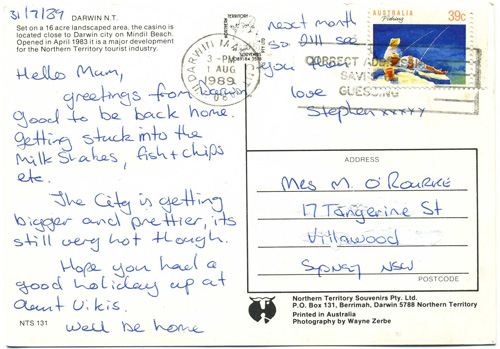 31/7/89
DARWIN N.T.
Set on a 16 acre landscaped area, the casino is
located close to Darwin city on Mindil Beach.
Opened in April 1983 it is a major development
for the Northern Territory tourist industry.
Hello Mum,
greetings from Darwin
good to be back home.
Getting stuck into the
Milk Shakes, fish + chips
etc.
The City is getting
bigger and prettier, its
still very hot though.
Hope you had a
good holiday up at
aunt Vikis.
Well be home
NTS 131
next month
so I'll see
you then
love
Stephen xxxxx
DARWIN MAIL
3-PM
1 AUG
1989
CORRECT ADDRESS
SAVES
GUESSING
AUSTRALIA
Fishing
39c
ADDRESS
Mrs M. O'Rourke
17 Tangerine St
Villawood
Sydney NSW
POSTCODE
Northern Territory Souvenirs Pty. Ltd.
P.O. Box 131, Berrimah, Darwin 5788 Northern Territory
Printed in Australia
Photography by Wayne Zerbe